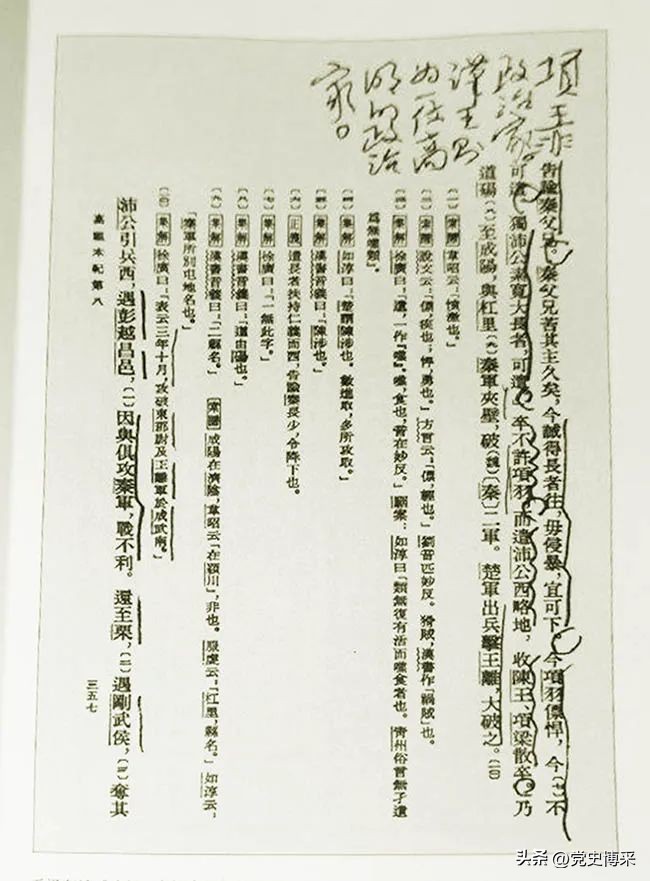 項王非
政治家。
漢王則
為一位高
明的政治
家。
告諭秦父兄。秦父兄苦其主久矣,今誠得長者往,毋侵暴,宜可下。今項羽僄悍,今〔七〕不
可遣。獨沛公素寬大長者,可遣。」卒不許項羽,而遣沛公西略地,收陳王、項梁散卒。乃
道碭〔八〕至成陽,與杠里〔九〕秦軍夾壁,破(魏)〔秦〕二軍。楚軍出兵擊王離,大破之。〔一〇〕
〔一〕索隱韋昭云:「憤激也。」
〔二〕索隱說文云:「僄,疾也;悍,勇也。」方言云:「僄,輕也。」劉音匹妙反。猾賊,漢書作「禍賊」也。
〔三〕集解徐廣曰:「遺,一作『噍』。噍,食也,音在妙反。」駰案:如淳曰「類無復有活而噍食者也。青州俗言無孑遺
為無噍類」。
〔四〕集解如淳曰:「楚謂陳涉也。數進取,多所攻取。」
〔五〕集解漢書音義曰:「陳涉也。」
〔六〕正義遣長者扶持仁義而西,告諭秦長少,令降下也。
〔七〕集解徐廣曰:「一無此字。」
〔八〕集解漢書音義曰:「道由碭也。」
〔九〕集解漢書音義曰:「二縣名。」索隱成陽在濟陰,韋昭云「在潁川」,非也。服虔云:「杠里,縣名。」如淳云:
「秦軍所別屯地名也。」
〔一〇〕集解徐廣曰:「表云三年十月,攻破東郡尉及王離軍於成武南。」
沛公引兵西,遇彭越昌邑,〔一〕因與俱攻秦軍,戰不利。還至栗,〔二〕遇剛武侯,〔三〕奪其
高祖本紀第八
三五七
头条 @党史博采